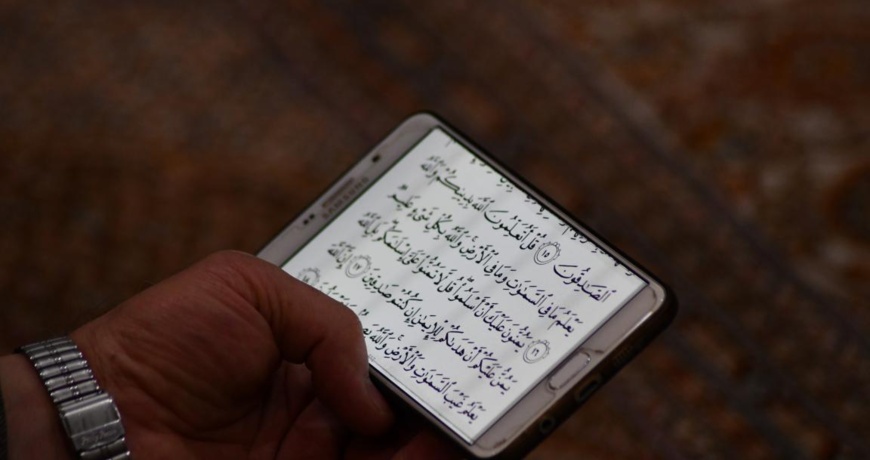 SAMSUNG
ٱلصَّٰدِقُونَ ١٥ قُلْ أَتُعَلِّمُونَ ٱللَّهَ بِدِينِكُمْ وَٱللَّهُ
يَعْلَمُ مَا فِى ٱلسَّمَٰوَٰتِ وَمَا فِى ٱلْأَرْضِ وَٱللَّهُ بِكُلِّ شَىْءٍ عَلِيمٌ
١٦ يَمُنُّونَ عَلَيْكَ أَنْ أَسْلَمُوا۟ قُل لَّا تَمُنُّوا۟ عَلَىَّ إِسْلَٰمَكُم بَلِ ٱللَّهُ
يَمُنُّ عَلَيْكُمْ أَنْ هَدَىٰكُمْ لِلْإِيمَٰنِ إِن كُنتُمْ صَٰدِقِينَ ١٧ إِنَّ ٱللَّهَ
يَعْلَمُ غَيْبَ ٱلسَّمَٰوَٰتِ وَٱلْأَرْضِ وَٱللَّهُ